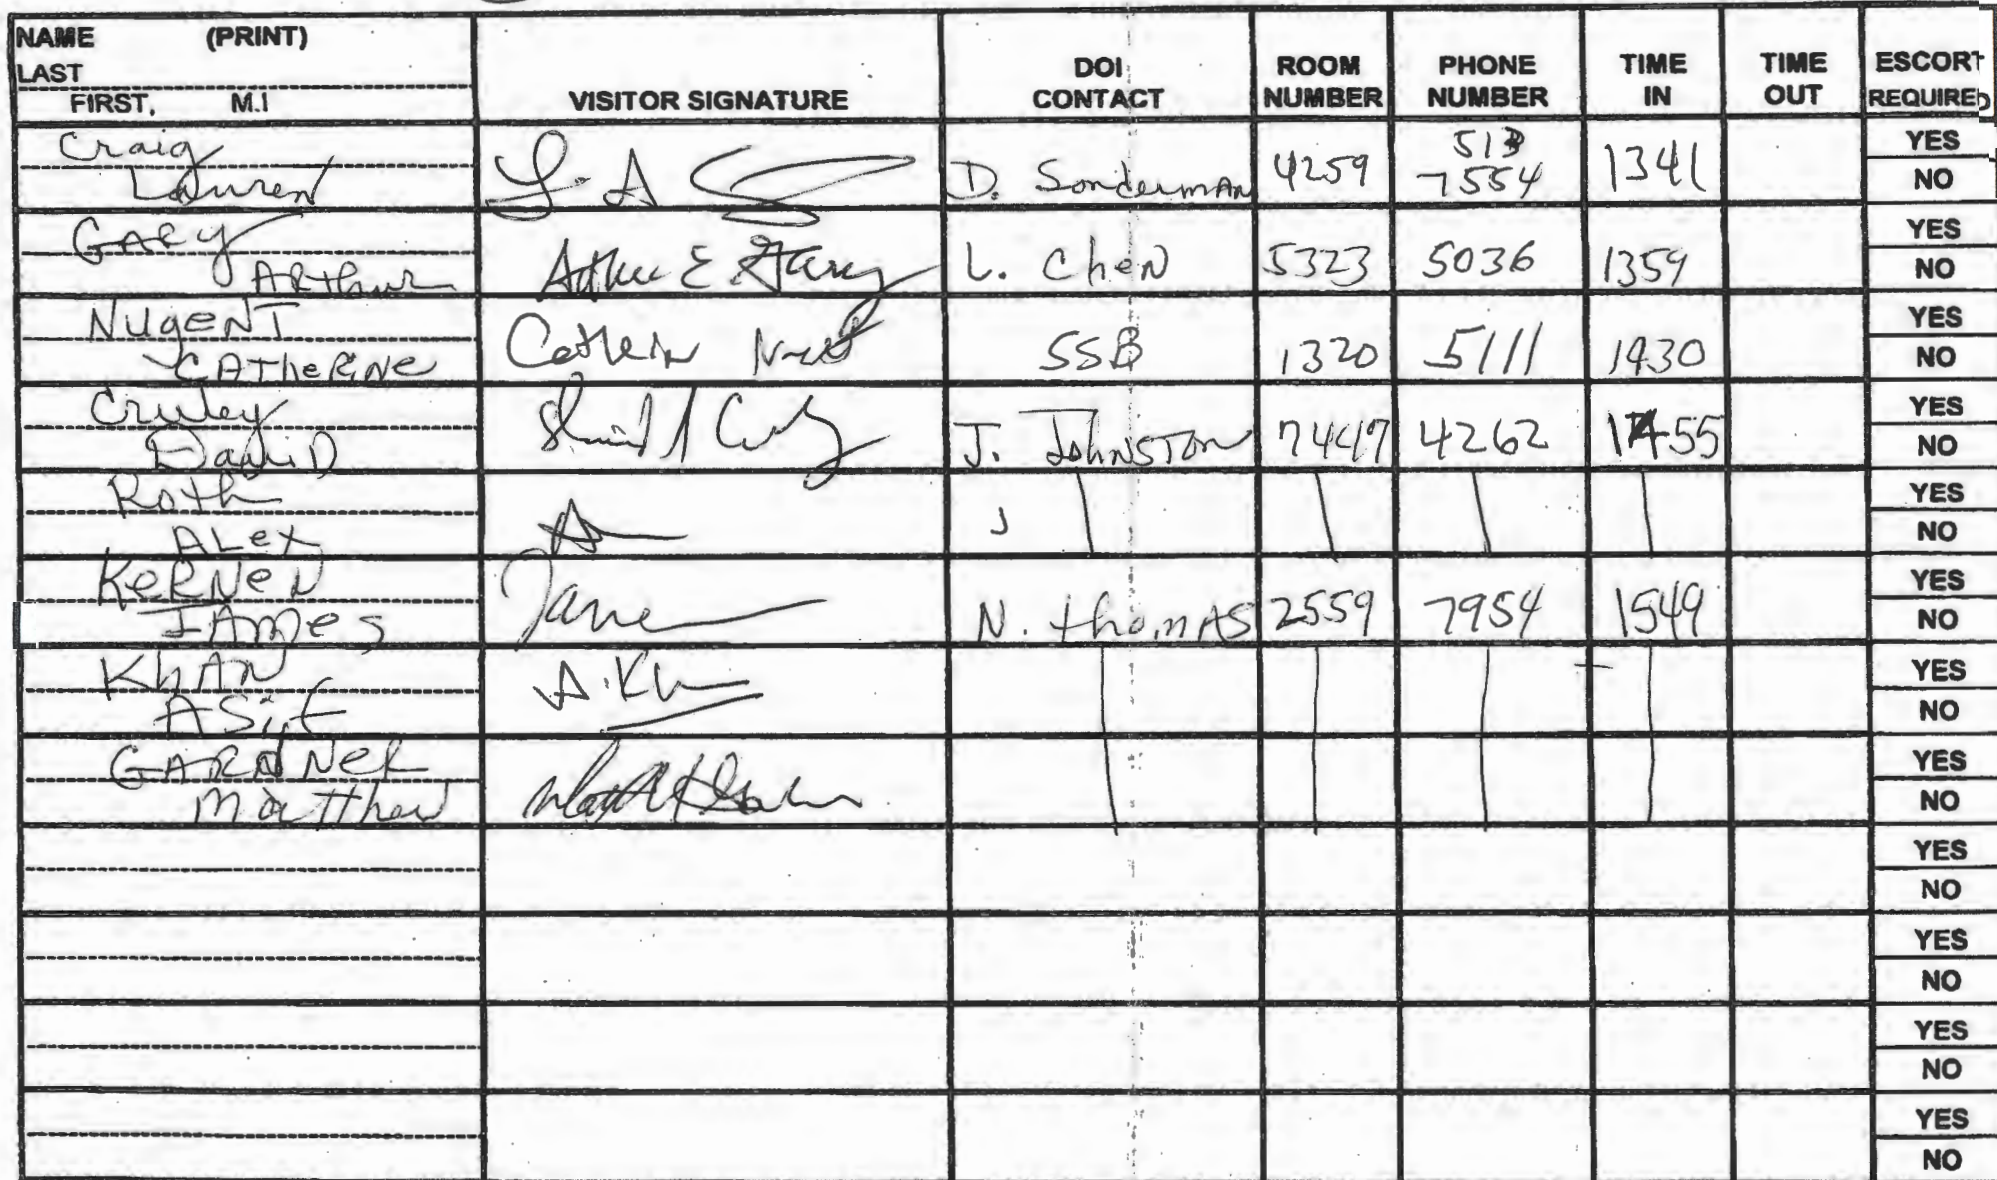 NAME (PRINT)
LAST
FIRST, M.I
VISITOR SIGNATURE
DOI
CONTACT
ROOM
NUMBER
PHONE
NUMBER
TIME
IN
TIME
OUT
ESCORT
REQUIRED
Craig
Lauren
D. Sonderman 4259 513 7554 1341
YES
NO
GARY
ARThur
Arthur E Gary L. CheN 5323 5036 1359
YES
NO
NugeNT
CATheRiNe
SSB 1320 5111 1430
YES
NO
Cruley
DaviD
J. JohNSTON 7447 4262 1455
YES
NO
Roth
ALex
YES
NO
KeRNeN
JAmes
N. thomAS 2559 7954 1549
YES
NO
KhAN
ASif
A. Kh
YES
NO
GARdNeR
Matthew
YES
NO
YES
NO
YES
NO
YES
NO
YES
NO